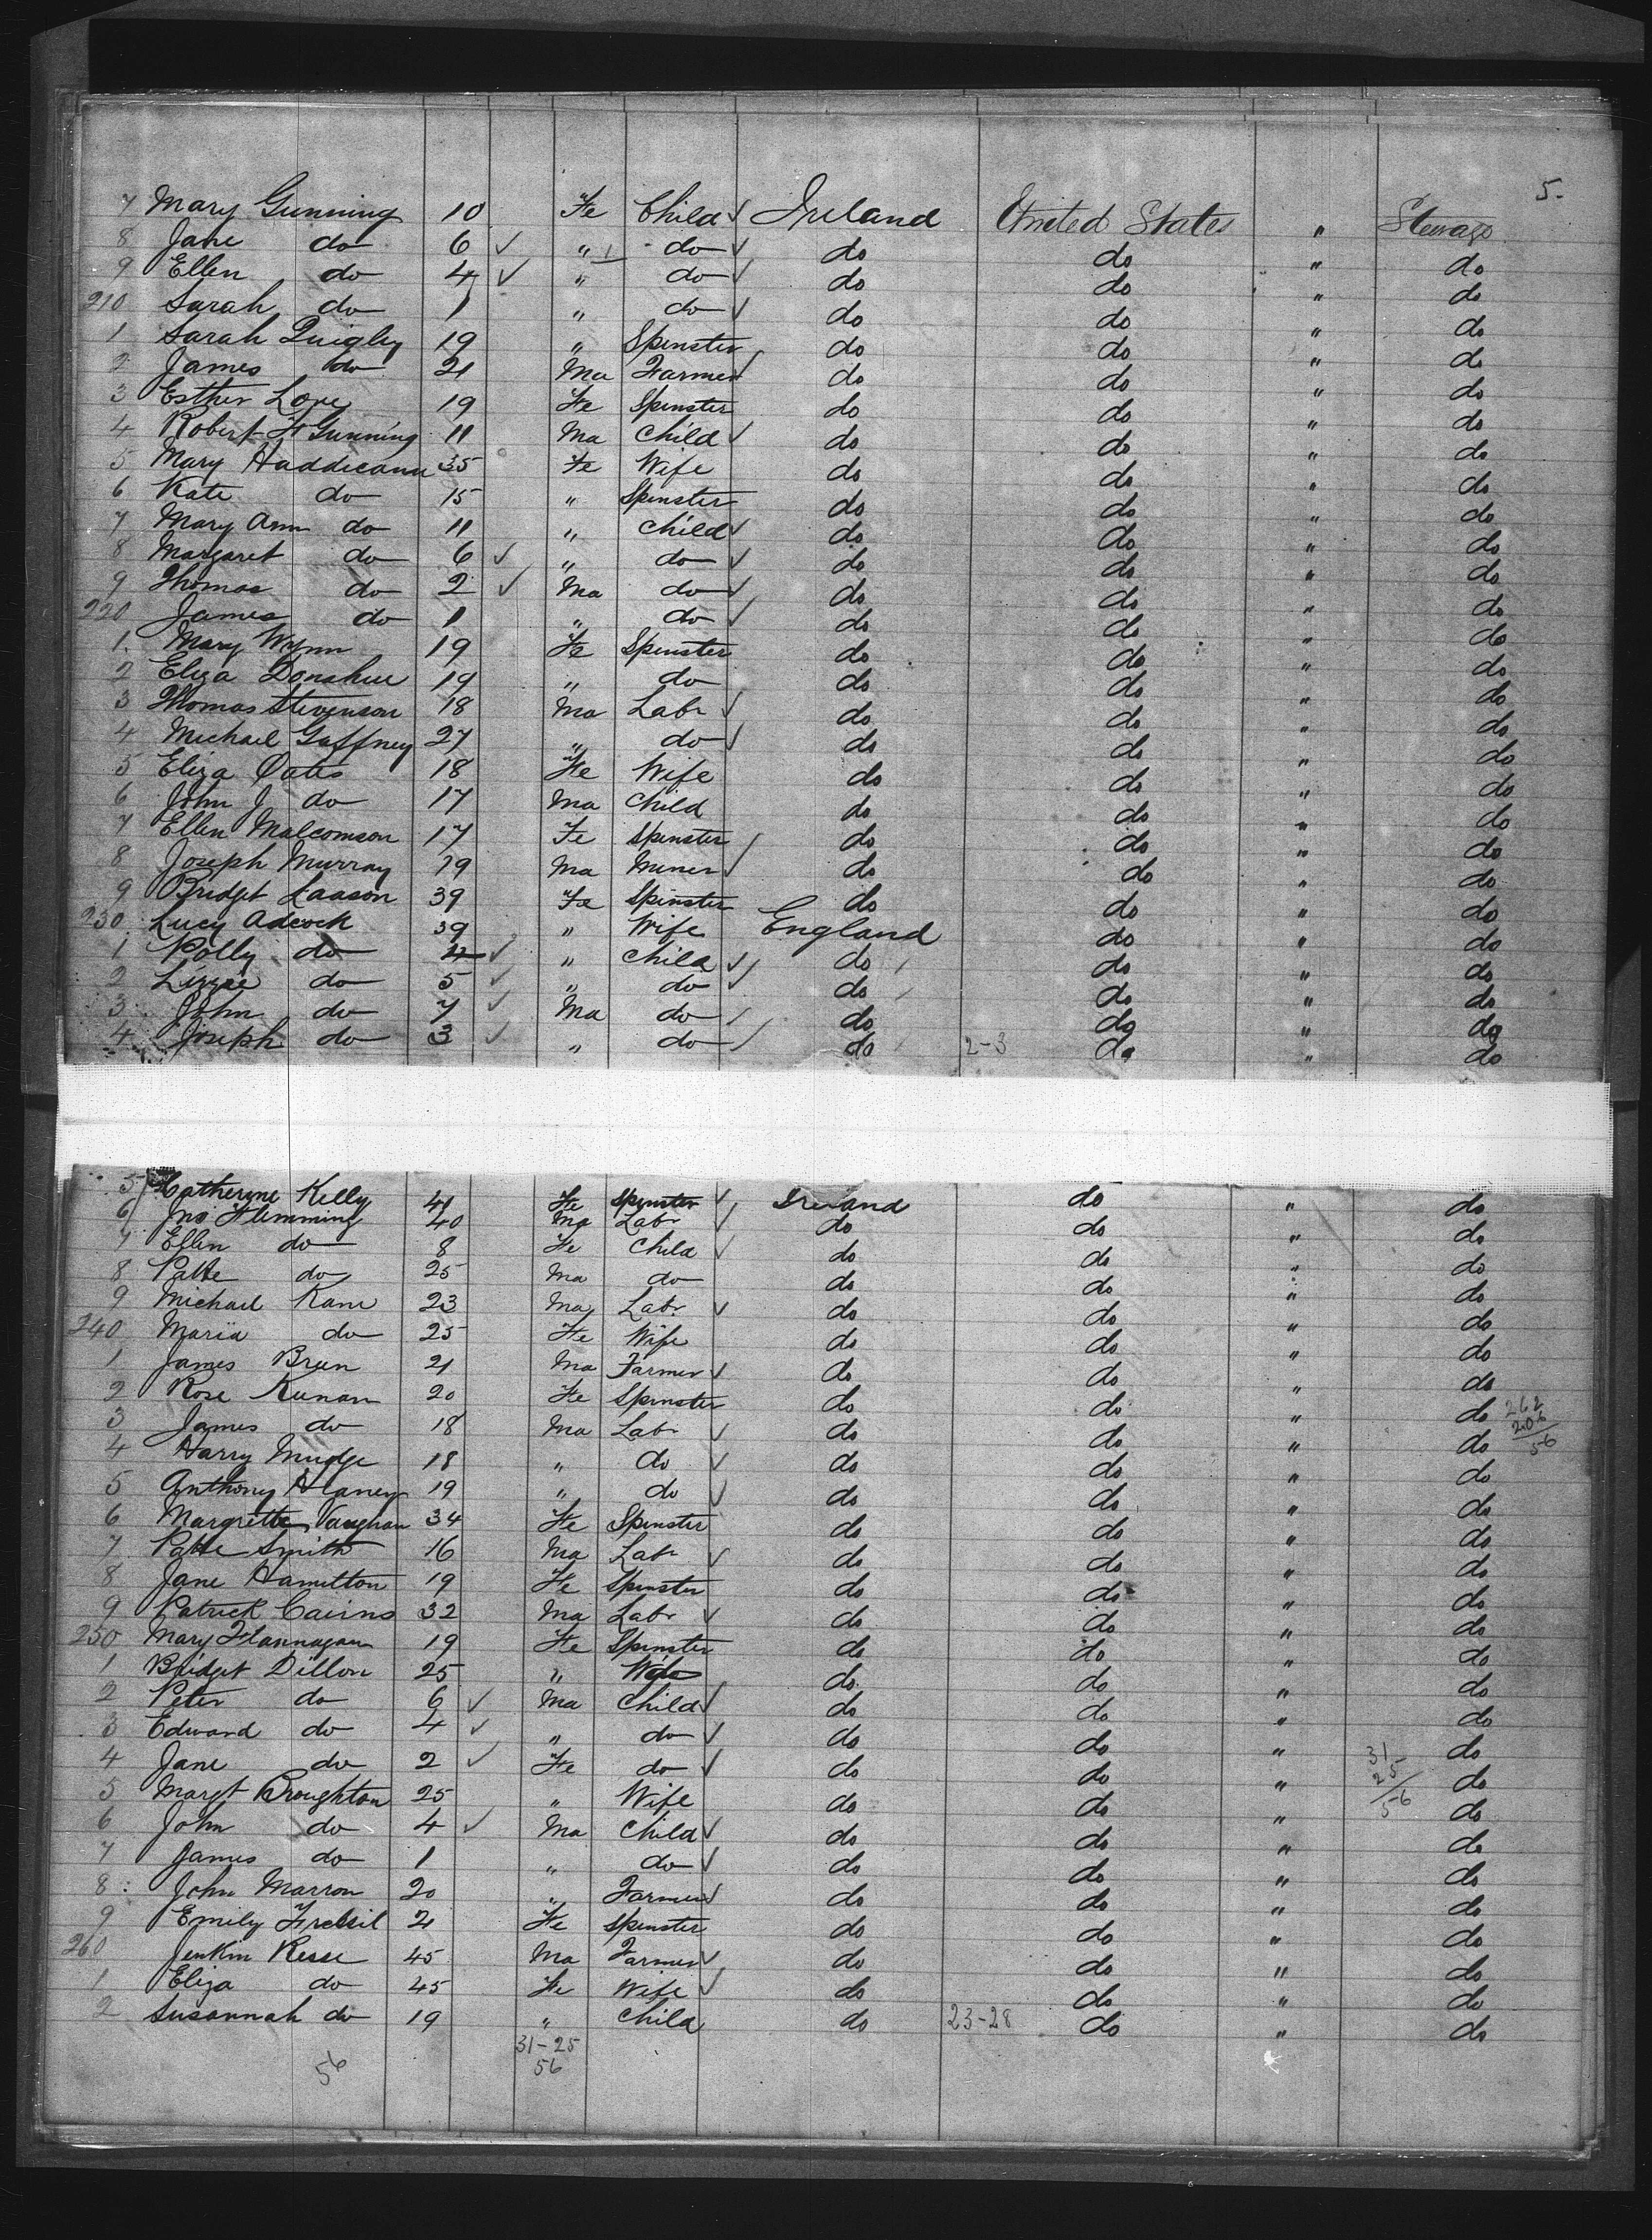 5.
7 Mary Gunning 10 Fe Child ✓ Ireland United States " Steerage
8 Jane do 6 ✓ " 1 do ✓ do do " do
9 Ellen do 4 ✓ " do ✓ do do " do
210 Sarah do 1 " do ✓ do do " do
1 Sarah Quigley 19 " Spinster do do " do
2 James do 21 Ma Farmer ✓ do do " do
3 Esther Love 19 Fe Spinster do do " do
4 Robert H Gunning 11 Ma Child ✓ do do " do
5 Mary 35 Fe Wife do do " do
6 Kate do 15 " Spinster do do " do
7 Mary Ann do 11 " Child ✓ do do " do
8 Margaret do 6 ✓ " do ✓ do do " do
9 Thomas do 2 ✓ Ma do ✓ do do " do
220 James do 1 " do ✓ do do " do
1. Mary Wynn 19 Fe Spinster do do " do
2 Eliza Donahue 19 " do do do " do
3 Thomas Stevenson 18 Ma Labr ✓ do do " do
4 Michael Gaffney 27 " do ✓ do do " do
5 Eliza Oates 18 Fe Wife do do " do
6 John J do 17 Ma Child do do " do
7 Ellen Malcomson 17 Fe Spinster do do " do
8 Joseph Murray 19 Ma Miner ✓ do do " do
9 Bridget 39 Fe Spinster do do " do
230 Lucy Adcock 39 " Wife England do " do
1 Polly do ✓ " Child ✓ do do " do
2 Lizzie do 5 ✓ " do ✓ do do " do
3 John do 7 ✓ Ma do do do " do
4 Joseph do 3 ✓ " do do 2-3 do " do
5 Catherine Kelly 41 Fe Spinster ✓ Ireland do " do
6 Jno Flemming 40 Ma Labr ✓ do do " do
7 Ellen do 8 Fe Child ✓ do do " do
8 Patke do 25 Ma do do do " do
9 Michael Kane 23 Ma Labr ✓ do do " do
240 Maria do 25 Fe Wife do do " do
1 James Breen 21 Ma Farmer ✓ do do " do
2 Rose Keenan 20 Fe Spinster do do " do 262
3 James do 18 Ma Labr ✓ do do " do 206
56
4 Harry Mudge 18 " do ✓ do do " do
5 Anthony 19 " do ✓ do do " do
6 Margrette Vaughan 34 Fe Spinster do do " do
7 Patke Smith 16 Ma Labr ✓ do do " do
8 Jane Hamilton 19 Fe Spinster do do " do
9 Patrick Cairns 32 Ma Labr ✓ do do " do
250 Mary Flannagan 19 Fe Spinster do do " do
1 Bridget Dillon 25 " Wife do do " do
2 Peter do 6 ✓ Ma Child ✓ do do " do
3 Edward do 4 ✓ " do ✓ do do " do
4 Jane do 2 ✓ Fe do ✓ do do " 31 do
5 Margt Broughton 25 " Wife do do " 25 do
56
6 John do 4 ✓ Ma Child ✓ do do " do
7 James do 1 " do ✓ do do " do
8 John Marron 20 " Farmer ✓ do do " do
9 Emily 21 Fe Spinster do do " do
260 Jenkin Reese 45 Ma Farmer ✓ do do " do
1 Eliza do 45 Fe Wife ✓ do do " do
2 Susannah do 19 " Child do 23-28 do " do
31-25
56 56